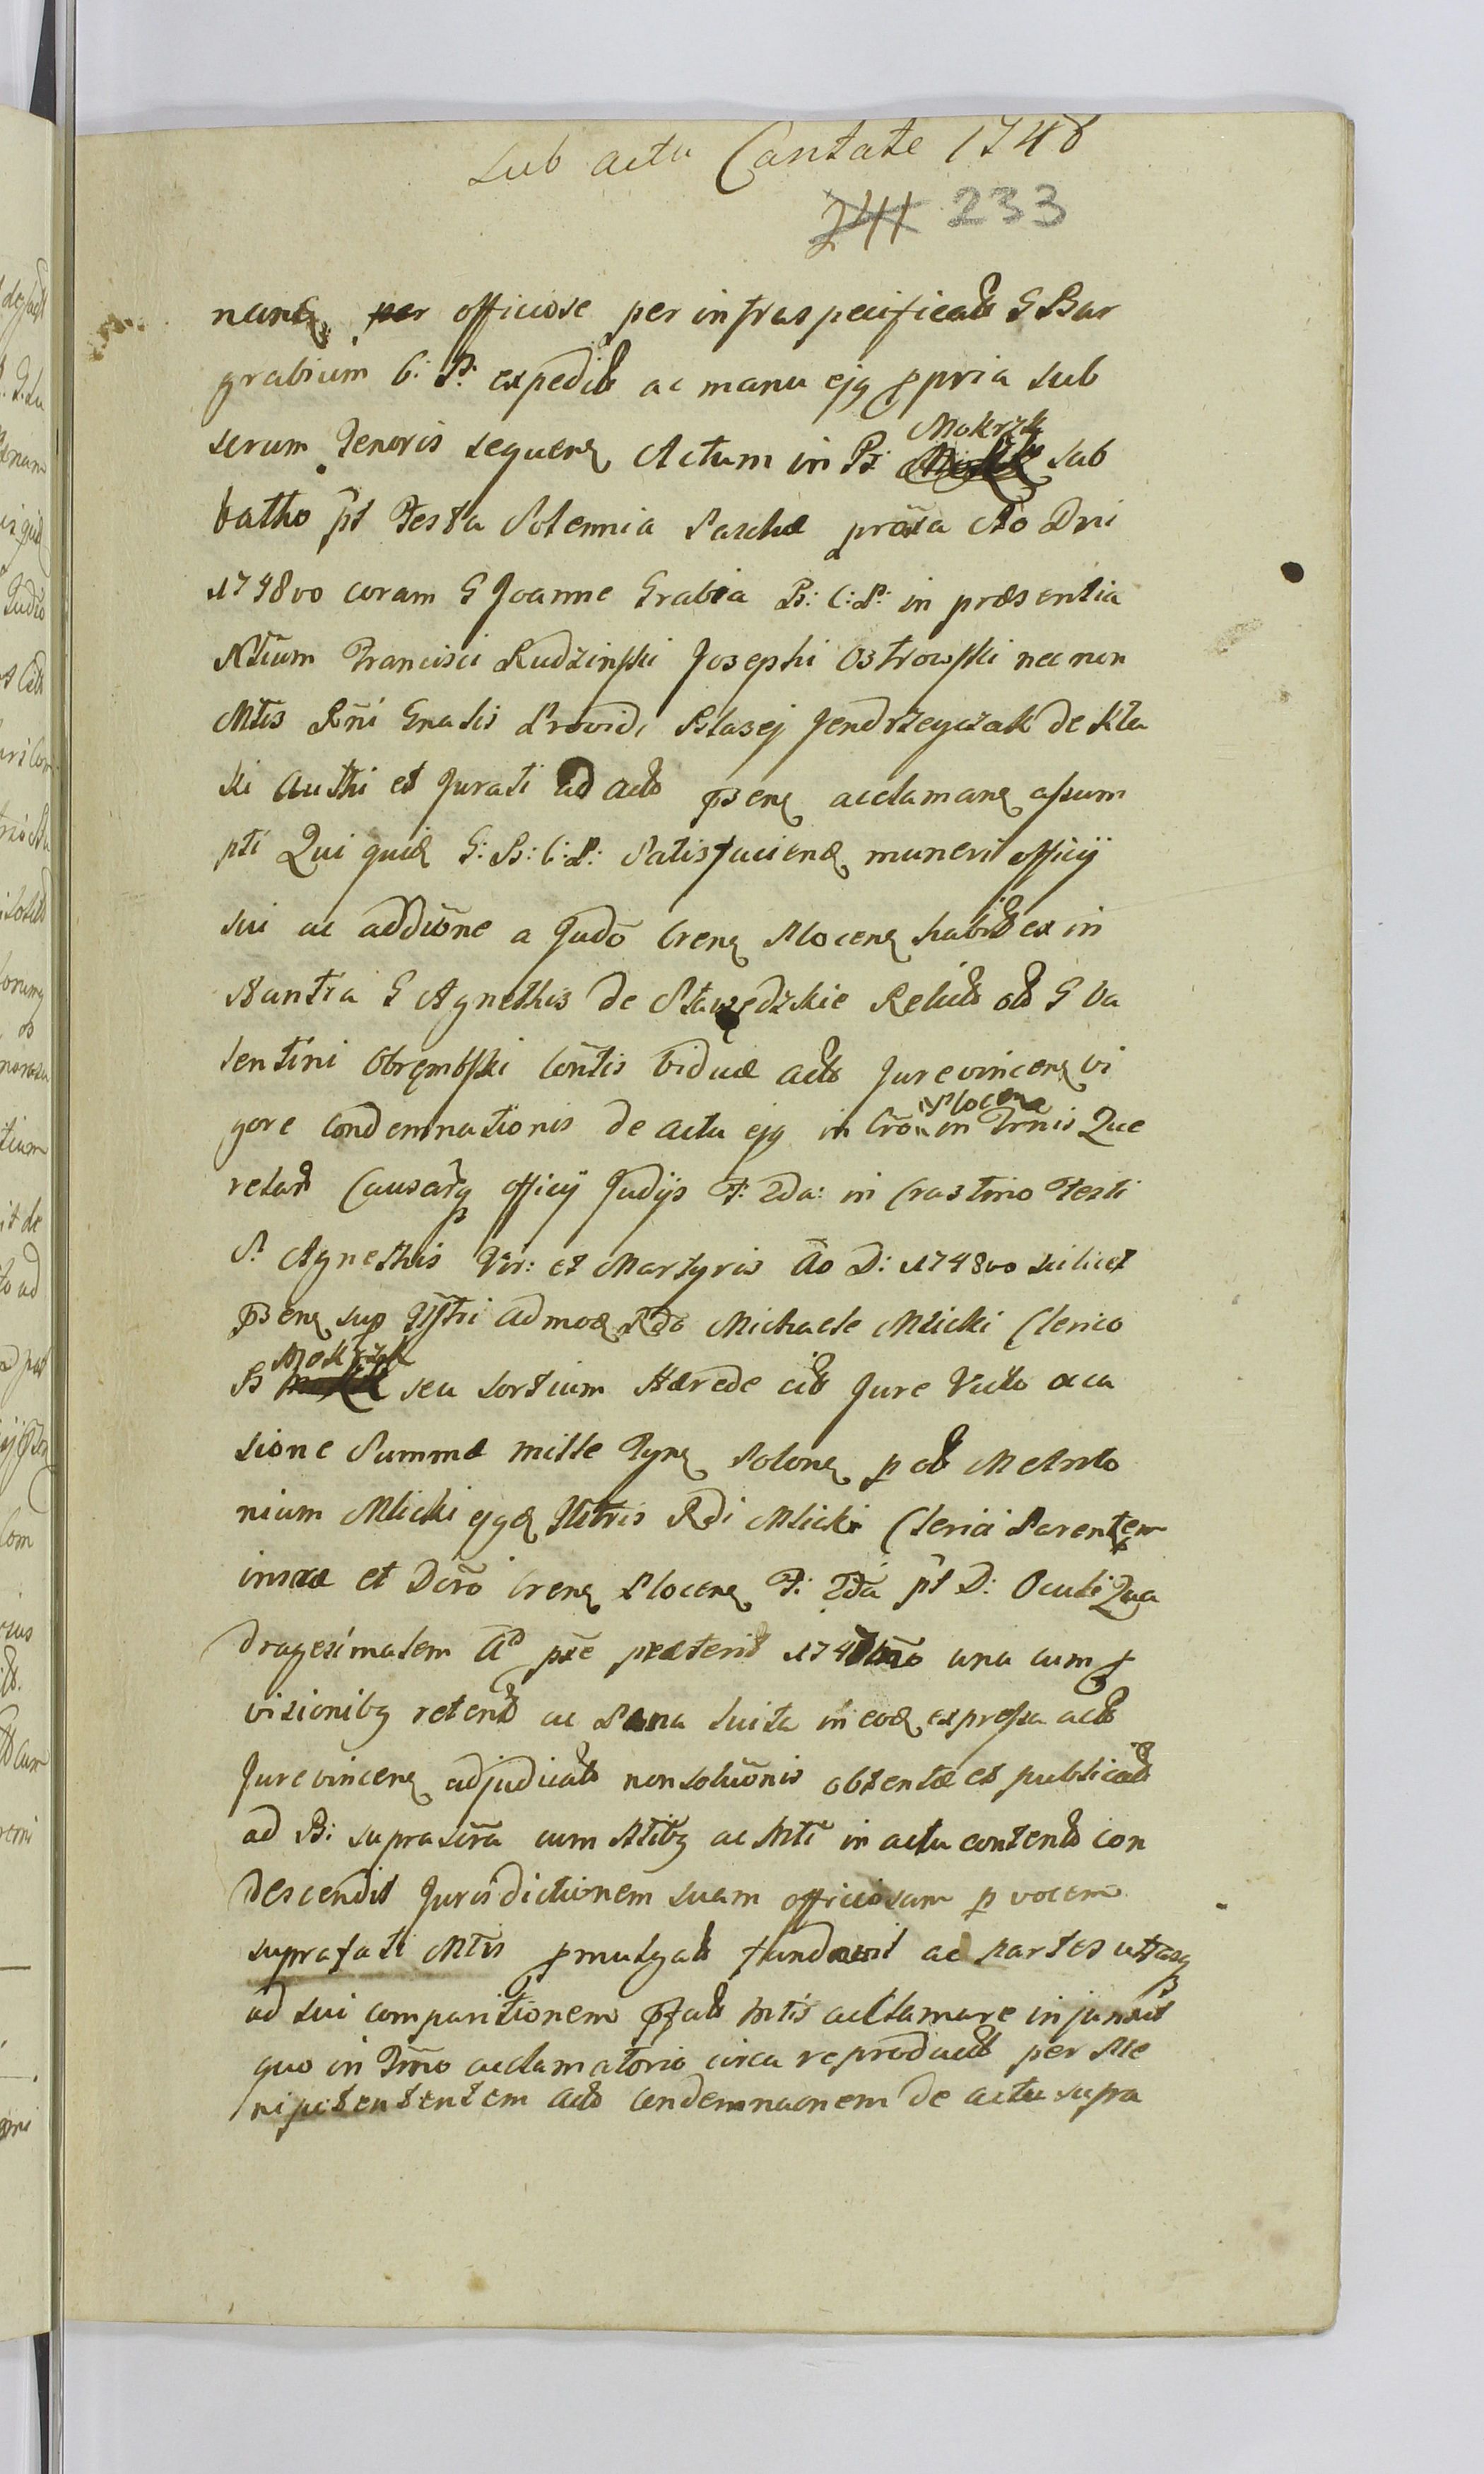 Sub actu Cantate 1748
241 233
nanq per officiose per infraspecificatt G Bur
grabium C: P: expeditt ac manu ejq ppria sub
scrum Tenoris sequenq Actum in B: Mokrzk sab
batho pt Festa Solennia Paschæ proxa Ao Dni
1748vo coram G Joanne Grabia B: C: P: in præsentia
Nlium Francisci Rudzinski Josephi Ostrowski nec non
Mtis Rni Gnalis Providi Blasej Jendrzeyczak de Kła
ki Authi et Jurati ad actt psenq acclamanq assum
pti Qui quid G: B: C: P: Satisfaciend muneris officij
sui ac addiōne a Judō Crenq Plocenq habitt ex in
stantia G Agnethis de Stawędzkie Relictt ott G Va
lentini Obrembski Cōntis viduæ actt Jurevincenq vi
gore Condemnationis de actu ejq in Crō Plocena in Trnis Que
relar Causarq officij Judijs F: 2da: in Crastino Festi
S: Agnethis Vir: et Martyris Ao D: 1748vo scilicet
psenq sup Illtri admod Rdo Michaele Mlicki Clerico
B Mokrzk seu sortium Hærede citt Jure Victo occa
sione Summæ mille Tynq Polonq p ott M Anto
nium Mlicki ejqd Illtris Rdi Mlicki Clerici Parentem
inscræ et Dcrō Crenq Plocenq F: 2da pt D: Oculi Qua
dragesimalem Ao pxe præterit una cum p
visionibq retentt ac Pæna luita in eod expressa actt
Jurevincenq adjudicatt nonsolutōnis obtentæ et publicatt
ad B: suprascrā cum Nlibq ac Mtī in actu contentt con
descendit Jurisdictionem suam officiosam p vocem
suprafati Mtis pmulgatt fundavit ac partes utrasq
ad sui comparitionem pfatt Mtis acclamare injunxit
quo in Trmō acclamatorio circa reproductt per Ple
nipotentem actt Condemnaonem de actu supra